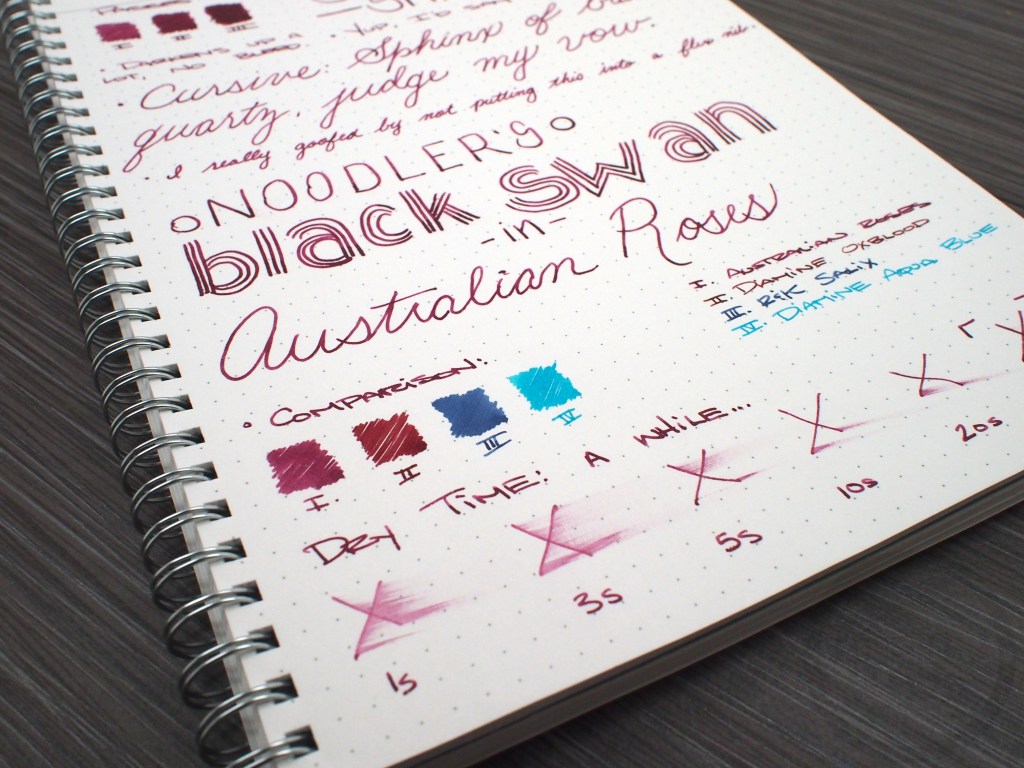 I II III
• DARKENS UP A
LOT, NO BLEED.
• YUP, I'D SAY
• Cursive: Sphinx of
quartz, judge my vow.
• I really goofed by not putting this into a flex nib.
NOODLER'S
black swan
-in-
Australian Roses
I. AUSTRALIAN ROSES
II. DIAMINE OXBLOOD
III. R&K SALIX
IV. DIAMINE AQUA BLUE
• COMPARISON:
I. II III IV
DRY TIME: A WHILE...
1s 3s 5s 10s 20s